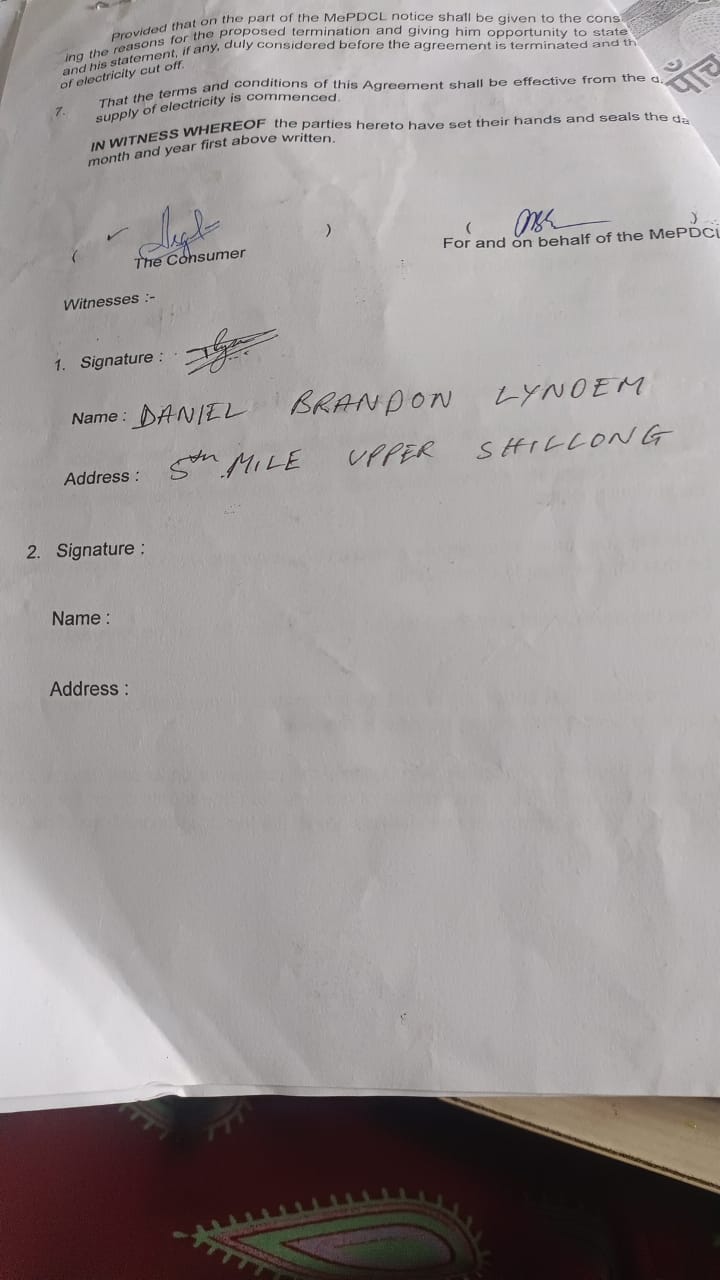 Provided that on the part of the MePDCL notice shall be given to the cons
ing the reasons for the proposed termination and giving him opportunity to state
and his statement, if any, duly considered before the agreement is terminated and th
of electricity cut off.
7. That the terms and conditions of this Agreement shall be effective from the d
supply of electricity is commenced.
IN WITNESS WHEREOF the parties hereto have set their hands and seals the da
month and year first above written.
( ) ( )
The Consumer For and on behalf of the MePDCL
Witnesses :-
1. Signature :
Name : DANIEL BRANDON LYNDEM
Address : 5th MILE UPPER SHILLONG
2. Signature :
Name :
Address :
पाँच